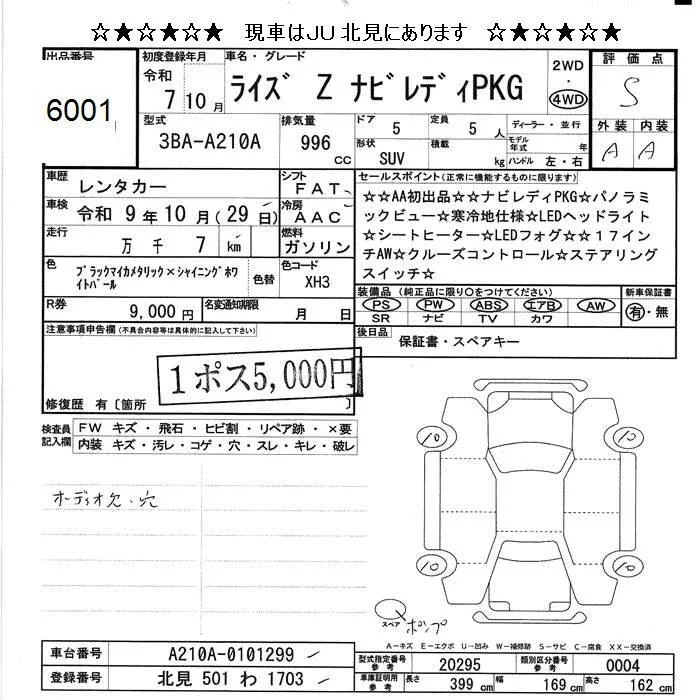 ☆★☆★☆★☆ 現車はJU北見にあります ☆★☆★☆★☆
出品番号
6001
初度登録年月
令和
7 10 月
車名・グレード
ライズ Z ナビレディPKG
2WD
・
4WD
評価点
S
外装 内装
A A
型式
3BA-A210A
排気量
996
cc
ドア
5
定員
5 人
形状
SUV
積載
kg
ディーラー・並行
モデル年式 年
ハンドル 左・右
車歴
レンタカー
車検
令和 9 年 10 月(29 日)
走行
万 千 7 km
シフト
FAT
冷房
AAC
燃料
ガソリン
色
ブラックマイカメタリック×シャイニングホワ
イトパール
色替
色コード
XH3
R券
9,000 円
名変通知期限
月 日
セールスポイント(正常に機能するものに限ります)
☆☆AA初出品☆☆ナビレディPKG☆パノラミ
ックビュー☆寒冷地仕様☆LEDヘッドライト
☆シートヒーター☆LEDフォグ☆☆17イン
チAW☆クルーズコントロール☆ステアリング
スイッチ☆
装備品(純正品に限り○をつけてください)
PS PW ABS エアB AW
SR ナビ TV カワ
新車保証書
有・無
後日品
保証書・スペアキー
注意事項申告欄(不具合内容等は具体的に記入して下さい)
1ポス5,000円
修復歴 有〔箇所 〕
検査員
記入欄
FW キズ・飛石・ヒビ割・リペア跡・×要
内装 キズ・汚レ・コゲ・穴・スレ・キレ・破レ
オーディオ欠・穴
10 10
10 10
スペア
ポンプ
A-キズ E-エクボ U-凹み W-補修跡 S-サビ C-腐食 XX-交換済
車台番号
A210A-0101299
登録番号
北見 501 わ 1703
型式指定番号
参考
20295
類別区分番号
参考
0004
車庫証明用
参考
長さ
399 cm
幅
169 cm
高さ
162 cm